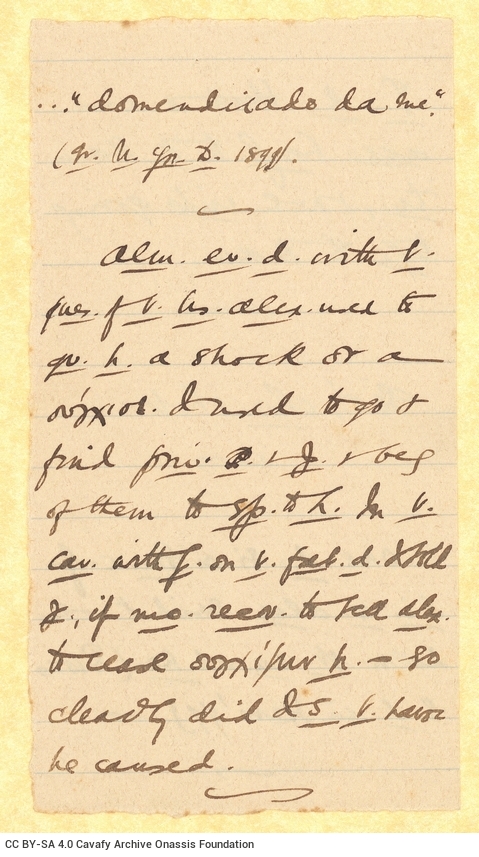 ..."domandicado da me".
Alm. ev. d. with t.
ques. of t. hs. Alex. used to
gv. h. a shock or a
I used to go &
find priv. P. & J. & beg
of them to sp. to h. In t.
car. with J. on t. fat. d. I told
J., if mo. recov. to tell Alex.
to h. — so
clearly did I s. t. havoc
he caused.
CC BY-SA 4.0 Cavafy Archive Onassis Foundation